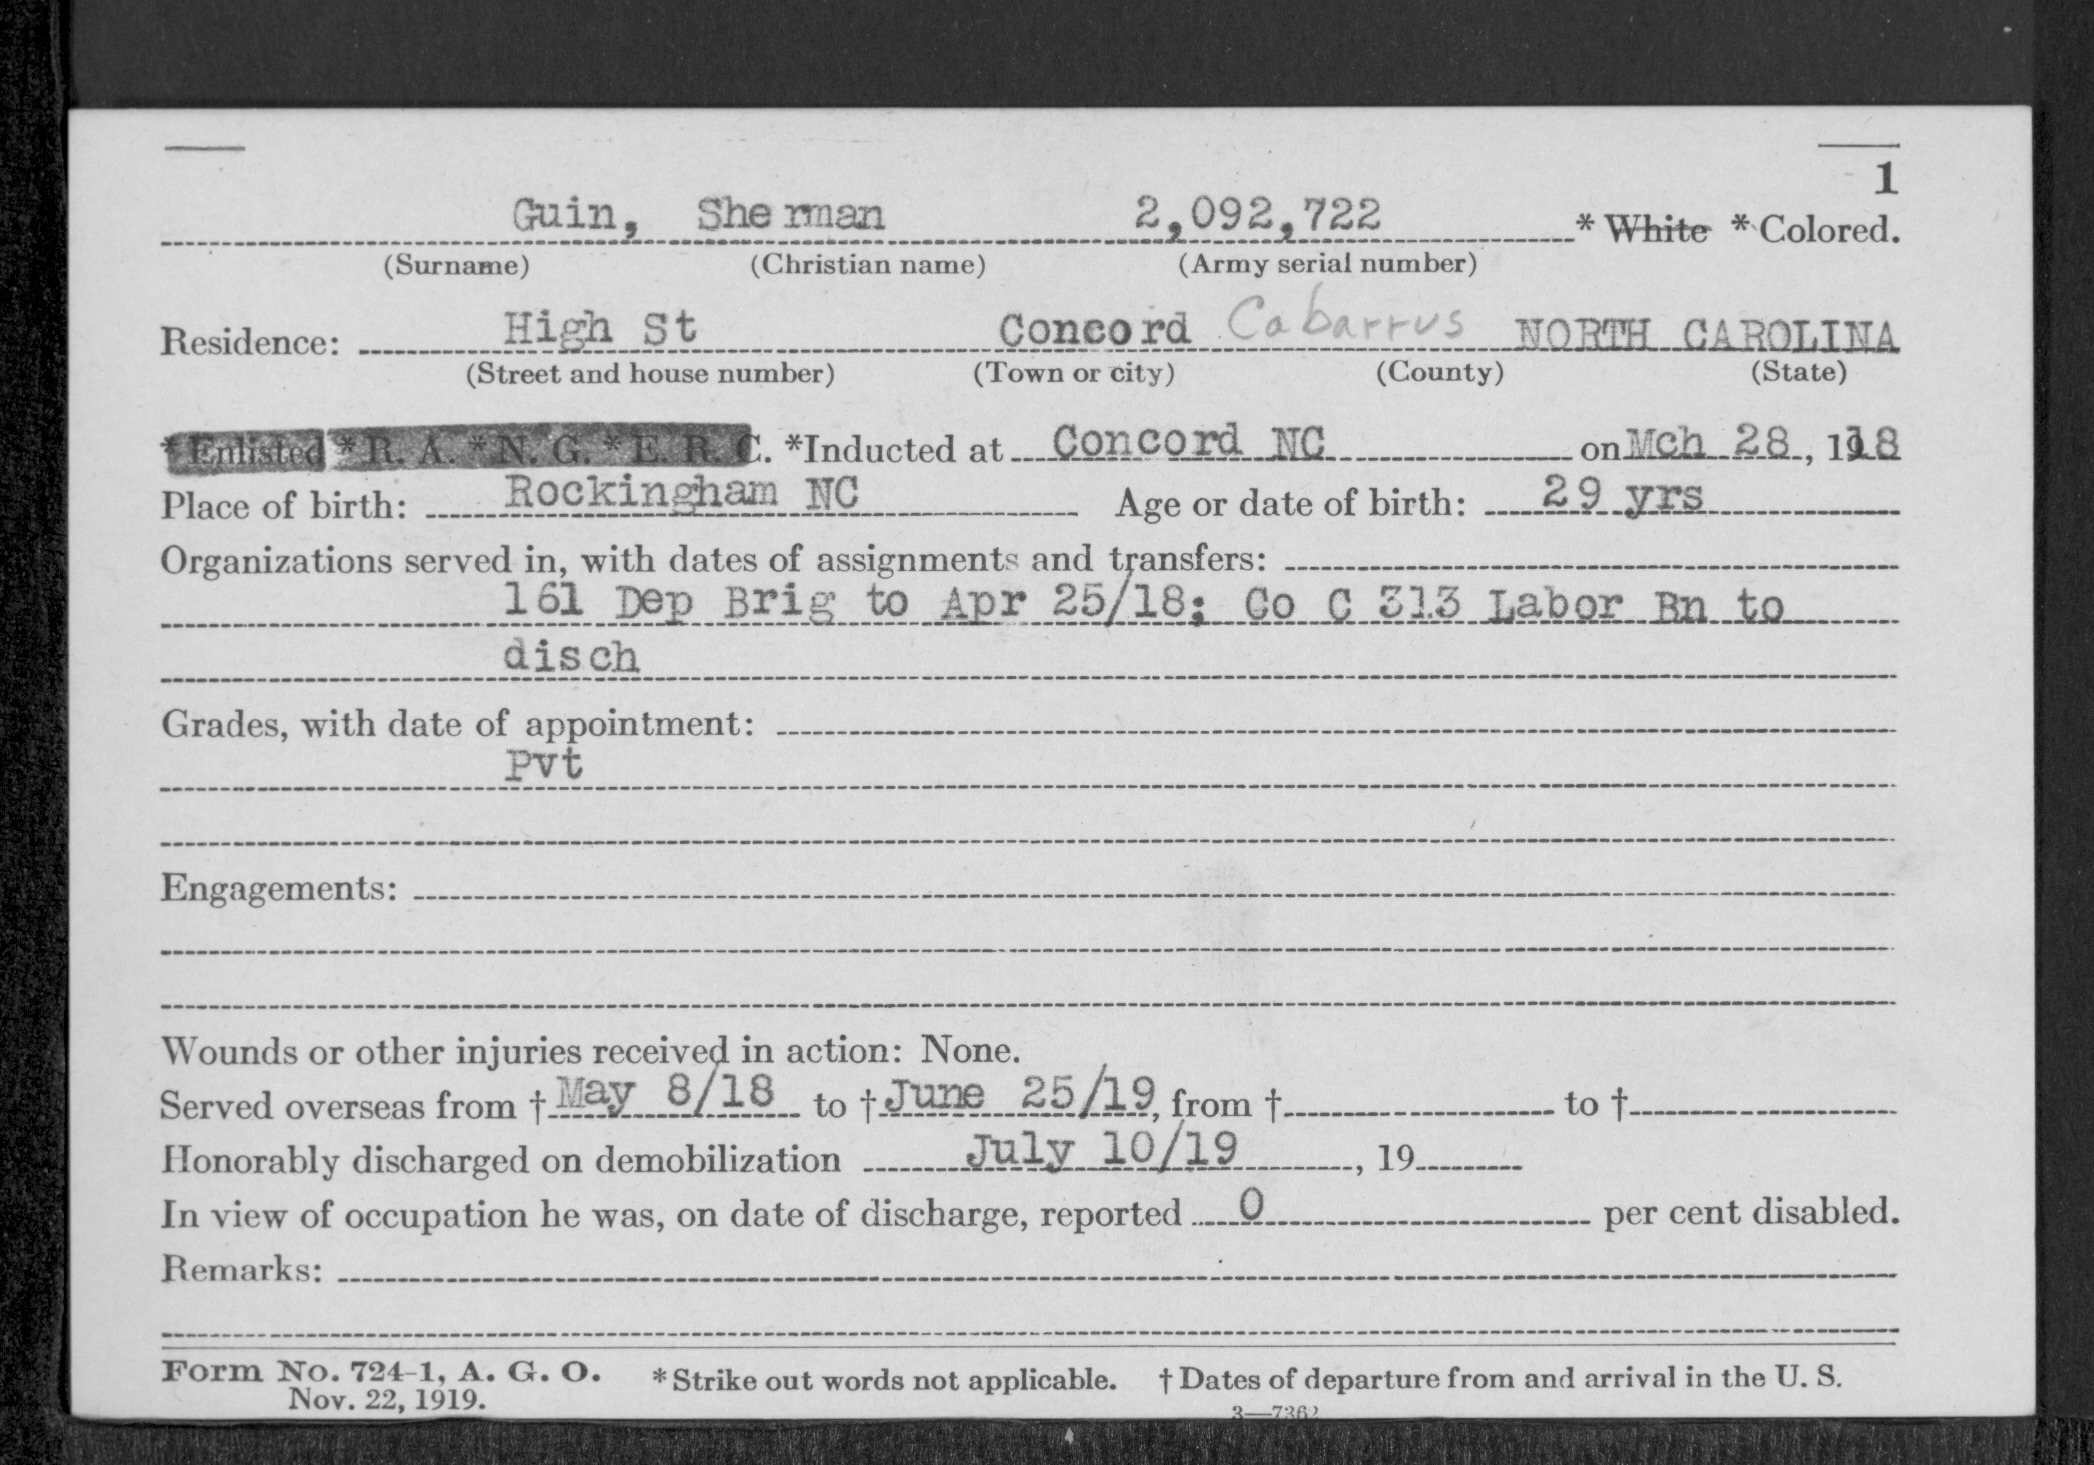 1
Guin, Sherman 2,092,722 * White * Colored.
(Surname) (Christian name) (Army serial number)
Residence: High St Concord Cabarrus NORTH CAROLINA
(Street and house number) (Town or city) (County) (State)
* Enlisted * R. A. * N. G. * E. R. C. *Inducted at Concord NC on Mch 28, 1918
Place of birth: Rockingham NC Age or date of birth: 29 yrs
Organizations served in, with dates of assignments and transfers:
161 Dep Brig to Apr 25/18; Co C 313 Labor Bn to
disch
Grades, with date of appointment:
Pvt
Engagements:
Wounds or other injuries received in action: None.
Served overseas from † May 8/18 to † June 25/19, from † to †
Honorably discharged on demobilization July 10/19, 19
In view of occupation he was, on date of discharge, reported 0 per cent disabled.
Remarks:
Form No. 724-1, A. G. O. * Strike out words not applicable. † Dates of departure from and arrival in the U. S.
Nov. 22, 1919.
3—7362